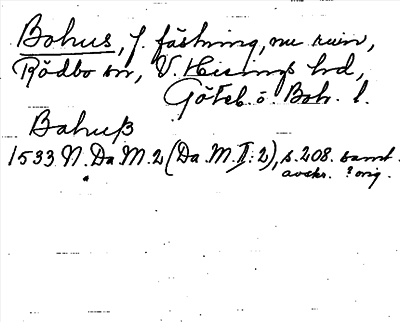 Bohus, f. fästning, nu ruin,
Rödbo sn, V. Hisings hd,
Göteb. o. Boh. l.
Bahuß
1533 N. Da M. 2 (Da. M. II: 2), s. 208. samt.
avskr. ? orig.